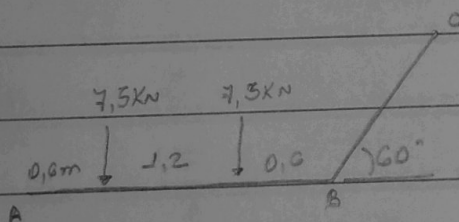 C
7,5KN 7,5KN
0,6m 1,2 0,6 60°
A B